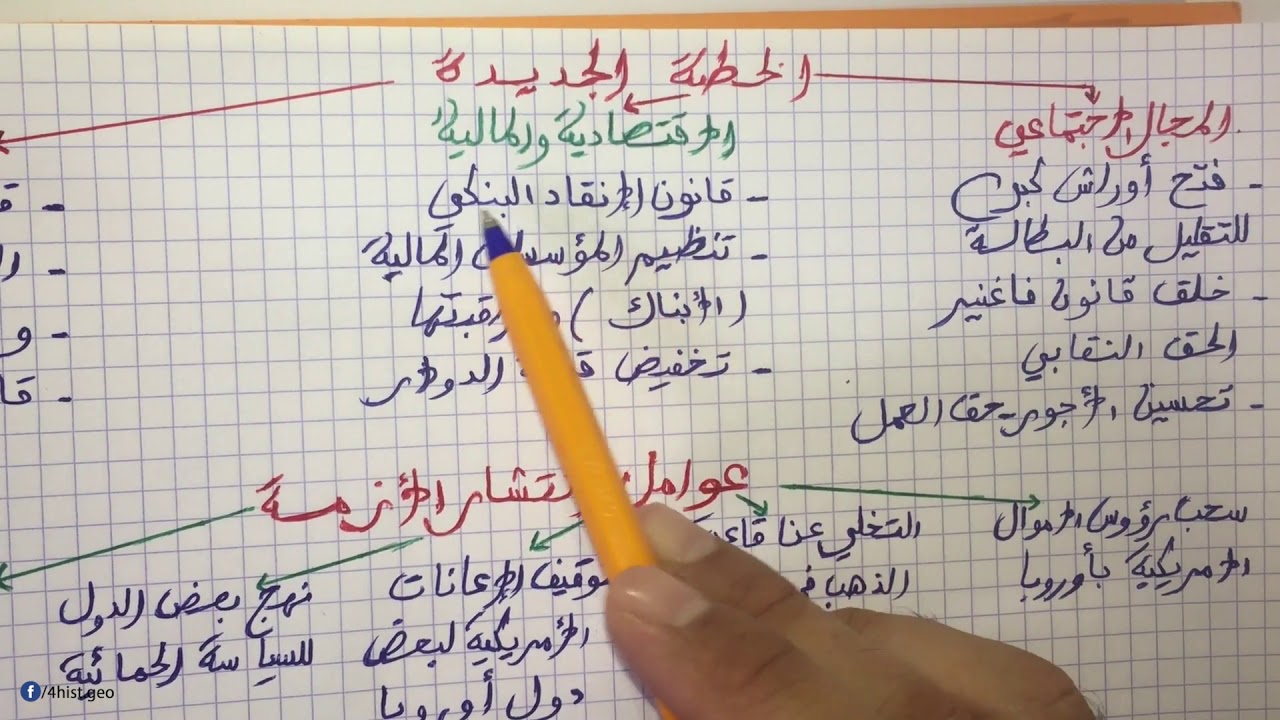 الخطة الجديدة
المجال الاجتماعي
- فتح أوراش كبرى
للتقليل من البطالة
- خلق قانون فاغنير
الحق النقابي
- تحسين الأجور - حق العمل
الاقتصادية والمالية
- قانون الإنقاد البنكي
- تنظيم المؤسسات المالية
(الأبناك)
- تخفيض الدولار
عوامل الأزمة
سحب رؤوس الاموال
الامريكية بأوروبا
التخلي عن
الذهب
الإعانات
الأمريكية لبعض
دول أوروبا
نهج بعض الدول
للسياسة الحمائية
/4hist.geo